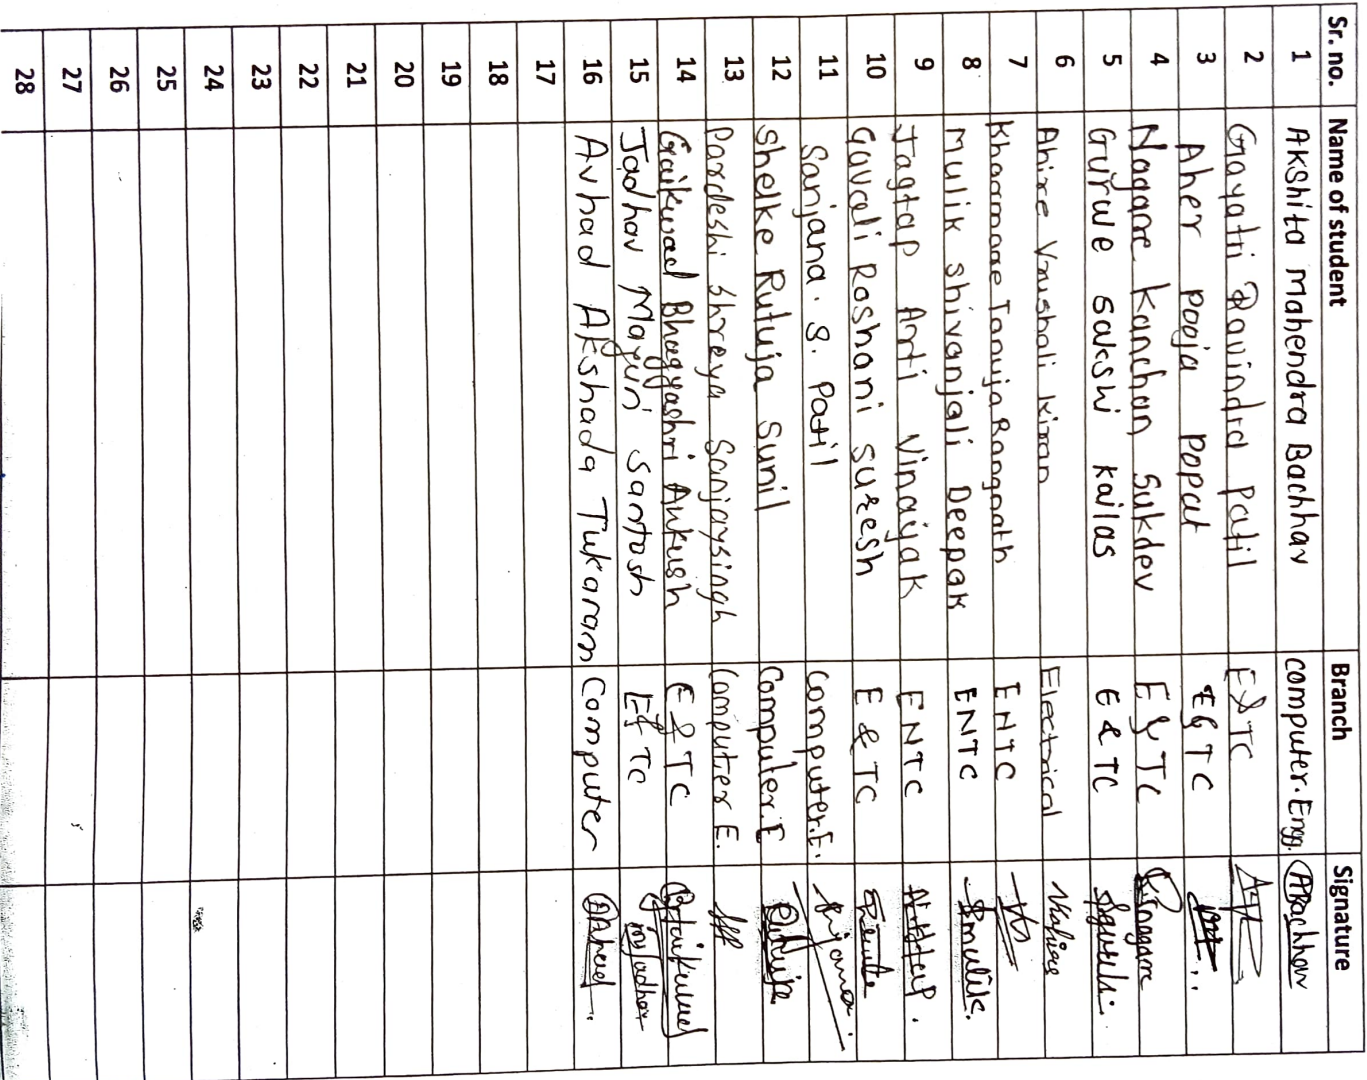 Sr. no. Name of student Branch Signature
1 Akshita Mahendra Bachhav computer. Engg. ABachhav
2 Gayatri Ravindra Patil E&TC
3 Aher Pooja Popat E&TC
4 Nagare Kanchan Sukdev E&TC
5 Gurwe Sakshi Kailas E&TC
6 Ahire Vrushali Kiran Electrical VAhire
7 Khairnar Tanuja Rangnath ENTC
8 Mulik Shivanjali Deepak ENTC Smulik.
9 Jagtap Arti Vinayak ENTC
10 Gavali Roshani suresh E&TC
11 Sanjana. S. Patil computer.E.
12 Shelke Rutuja Sunil Computer.E
13 Pardeshi Shreya Sanjaysingh Computer E.
14 Gaikwad Bhagyashri Ankush E&TC
15 Jadhav Mayuri Santosh E&TC mjadhav
16 Avhad Akshada Tukaram Computer
17
18
19
20
21
22
23
24
25
26
27
28